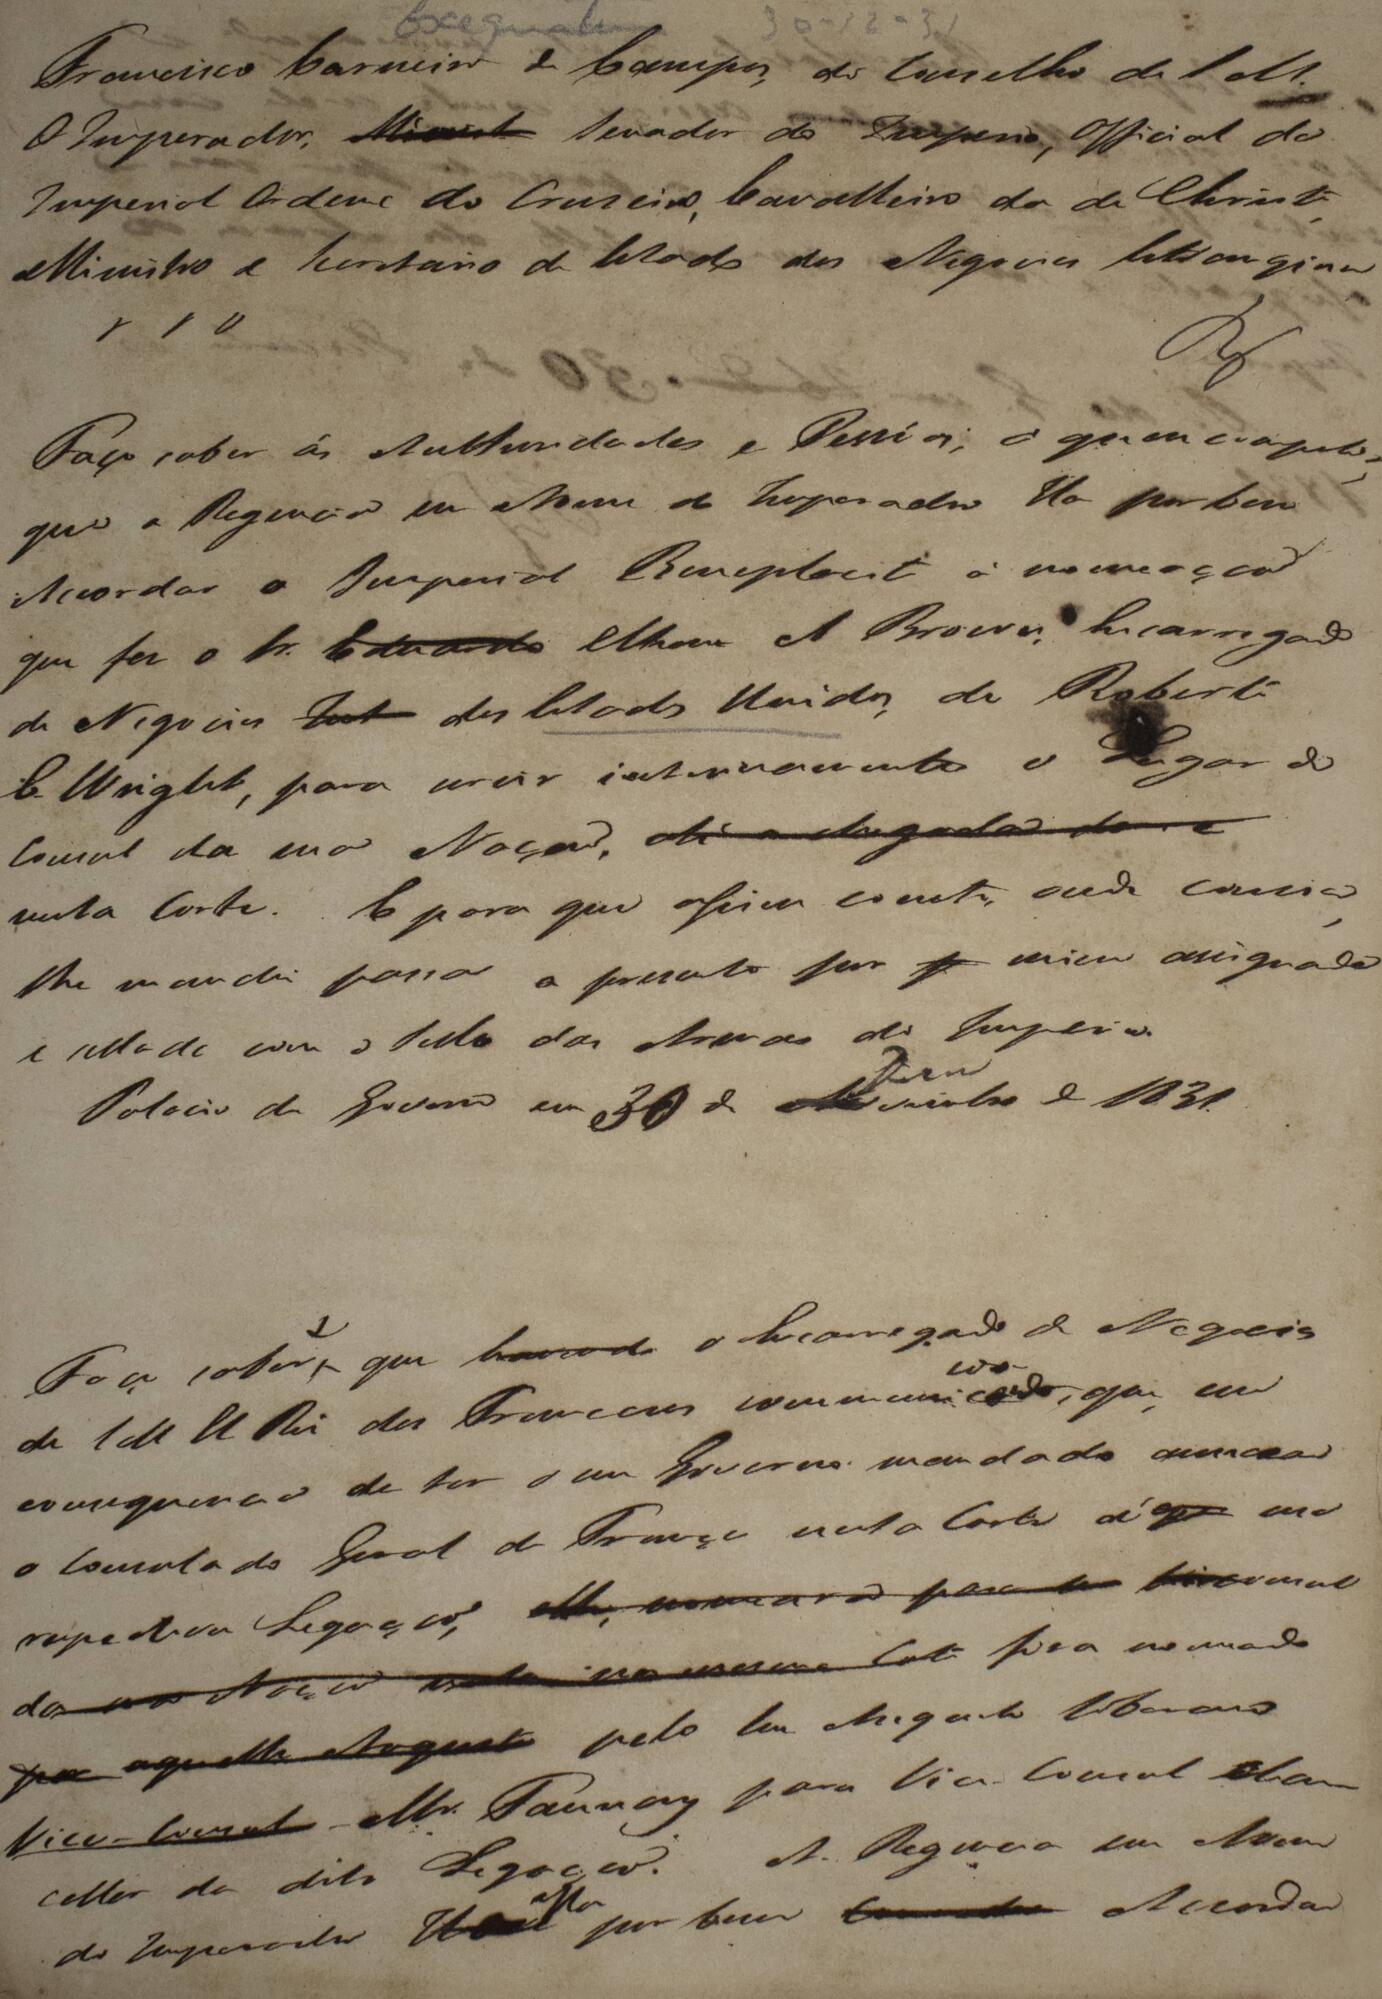 Exequatur 30-12-31
Francisco Carneiro de Campos, do Conselho de S. M.
O Imperador, Senador do Imperio, Official da
Imperial Ordem do Cruseiro, Cavalheiro da de Christo,
Ministro e Secretario de Estado dos Negocios Estrangeiros
Faço saber ás Authoridades e Pessôas, a quem competir,
que a Regencia em Nome do Imperador Ha por bem
Accordar o Imperial Beneplacito á nomeação
que fez o Sr. Eduardo Ethan A Brown, Encarregado
de Negocios dos Estados Unidos, de Robert
C. Wright, para servir interinamente o Lugar de
Consul da sua Nação, até a chegada do
nesta Corte. E para que assim conste, onde convier,
lhe mandei passar a presente por mim assignada
e sellada com o Sello das Armas do Imperio.
Palacio do Governo em 30 de Dezembro de 1831.
Faço saber, que havendo o Encarregado de Negocios
de S M El Rei dos Francezes communicado, que, em
consequencia de ter o seu Governo mandado annexar
o Consulado Geral de França nesta Corte á sua
respectiva Legação, nomeara para Consul
da sua Nação nesta mesma Corte fora nomeado
por aquelle Augusto pelo Seu Augusto Soberano
Vice-Consul Mr. Taunay para Vice-Consul Chan
celler da dita Legação. A Regencia em Nome
do Imperador Ha por bem Accordar